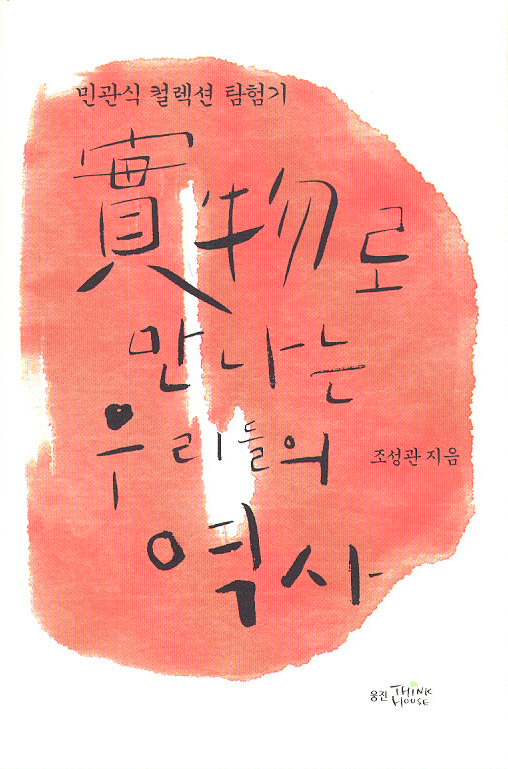 민관식 컬렉션 탐험기
實物로
만나는
우리들의
조성관 지음
역사
웅진 THINK HOUSE